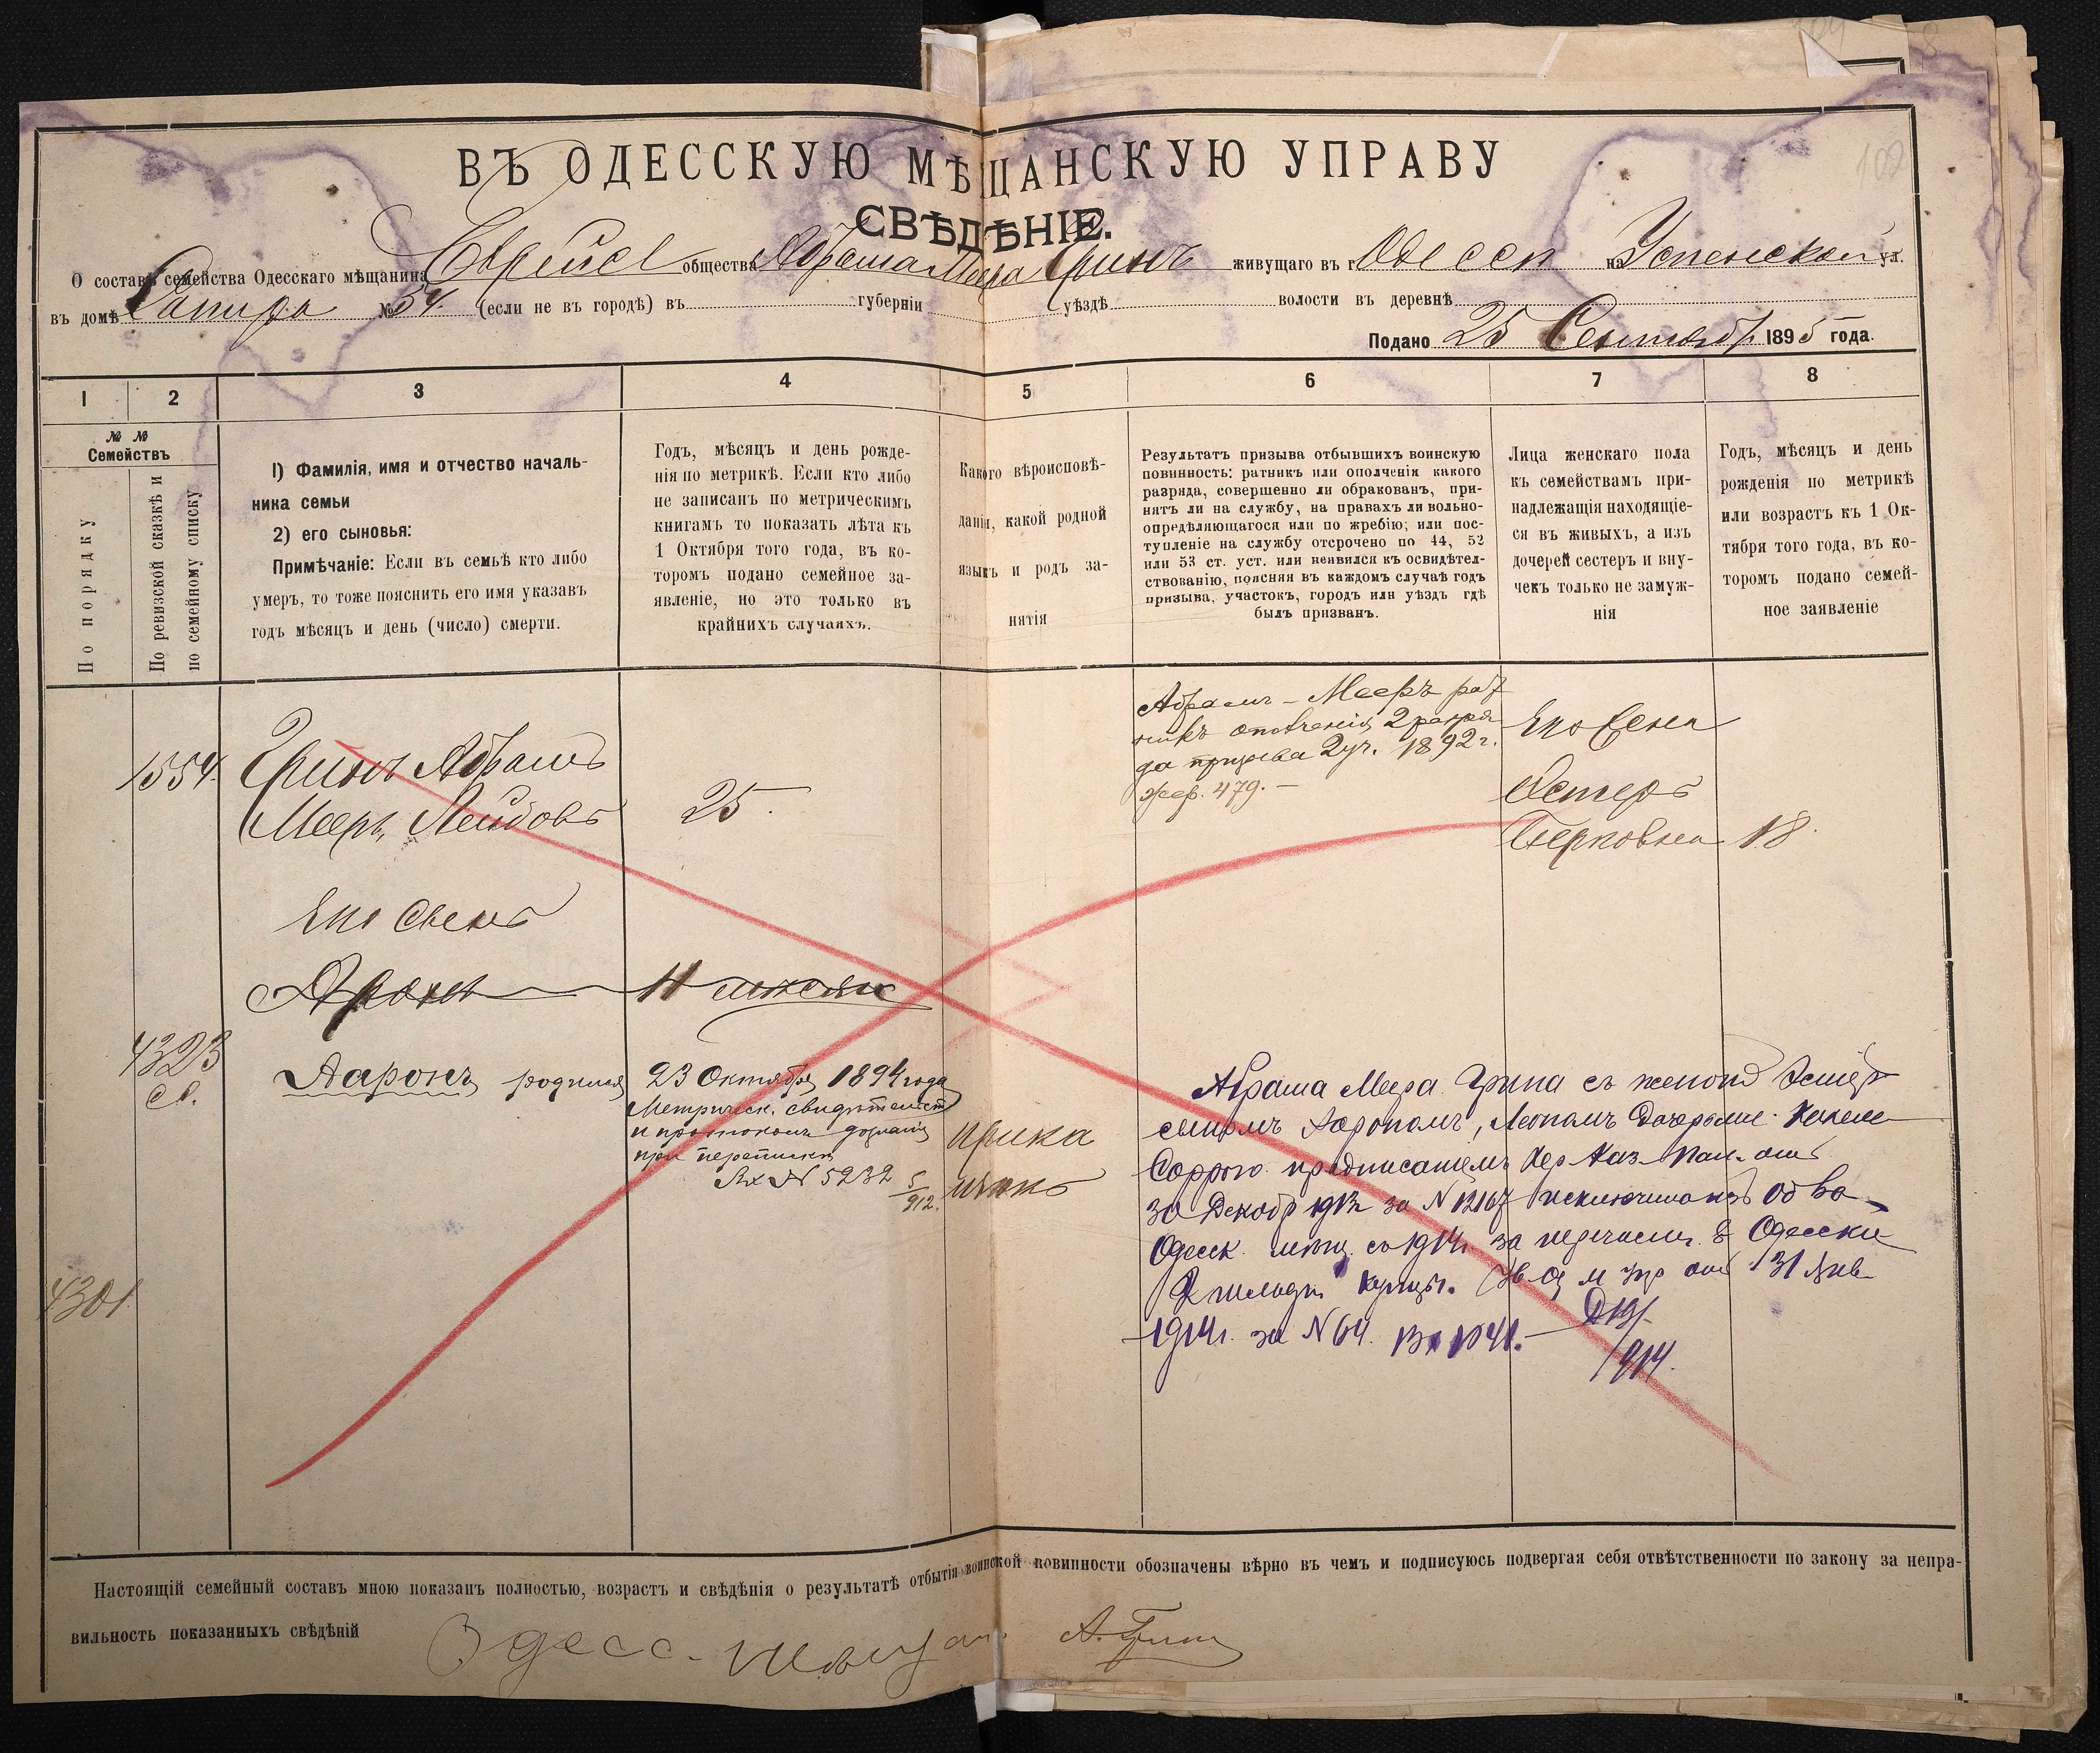 ВЪ ОДЕССКУЮ МѢЩАНСКУЮ УПРАВУ
СВѢДѢНІЕ.
О составѣ семейства Одесскаго мѣщанина Еврейск общества Абрама Меера Гринъ живущаго въ г. Одессѣ на Успенской ул.
въ домѣ Сапира № 54. (если не въ городѣ) въ губерніи уѣздѣ волости въ деревнѣ
Подано 25 Сентябр 1895 года.
1 2 3 4 5 6 7 8
№ № Семействъ
По порядку
По ревизской сказкѣ и
по семейному списку
1) Фамилія, имя и отчество началь-
ника семьи
2) его сыновья:
Примѣчаніе: Если въ семьѣ кто либо
умеръ, то тоже пояснить его имя указавъ
годъ мѣсяцъ и день (число) смерти.
Годъ, мѣсяцъ и день рожде-
нія по метрикѣ. Если кто либо
не записанъ по метрическимъ
книгамъ то показать лѣта къ
1 Октября того года, въ ко-
торомъ подано семейное за-
явленіе, но это только въ
крайнихъ случаяхъ.
Какого вѣроисповѣ-
данія, какой родной
языкъ и родъ за-
нятія
Результатъ призыва отбывшихъ воинскую
повинность: ратникъ или ополченія какого
разряда, совершенно ли обракованъ, при-
нятъ ли на службу, на правахъ ли вольно-
опредѣляющагося или по жребію; или пос-
тупленіе на службу отсрочено по 44, 52
или 53 ст. уст. или неявился къ освидѣтел-
ствованію, поясняя въ каждомъ случаѣ годъ
призыва, участокъ, городъ или уѣздъ гдѣ
былъ призванъ.
Лица женскаго пола
къ семействамъ при-
надлежащія находящіе-
ся въ живыхъ, а изъ
дочерей сестеръ и вну-
чекъ только не замуж-
нія
Годъ, мѣсяцъ и день
рожденія по метрикѣ
или возрастъ къ 1 Ок-
тября того года, въ ко-
торомъ подано семей-
ное заявленіе
1554. Гринъ Абрамъ
Мееръ Лейбовъ
25.
Абрамъ-Мееръ рат
никъ ополченія 2 разря
да призыва 2 уч. 1892 г.
жер. 479.
Его жена
Эстеръ
Берковна 18.
Его сынъ
Аронъ 11 мѣсяц
4323
Ааронъ родился 23 Октября 1894 года
Метрическ. свидѣтельст
и протоколъ дознанія
при перепискѣ
Вх № 5232 5/912.
4301
Абрама Меера Грина съ женой Эстер
сыномъ Аарономъ, Леономъ дочерьми
предписаніемъ Хер. Каз. Пал. отъ
30 Декабр 1913 за N 12167 исключить изъ об ва
Одесск. мѣщ. съ 1914 г. за перечисл. в Одесскіе
2 гильдіи купцы. Ув. О. м. Упр. отъ 31 Янв
1914 г. за N 64. Вх 1041.
/914.
Настоящій семейный составъ мною показанъ полностью, возрастъ и свѣдѣнія о результатѣ отбытія воинской повинности обозначены вѣрно въ чемъ и подписуюсь подвергая себя отвѣтственности по закону за непра-
вильность показанныхъ свѣдѣній
Одесс. мѣщан. А. Гринъ